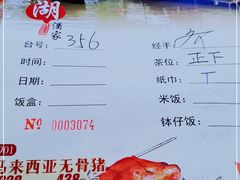 湖
渔家
台号: 356 经手:
时间: 茶位: 正下
日期: 纸巾: T
饭盒: 米饭:
№ 0003074 钵仔饭:
马来西亚无骨猪